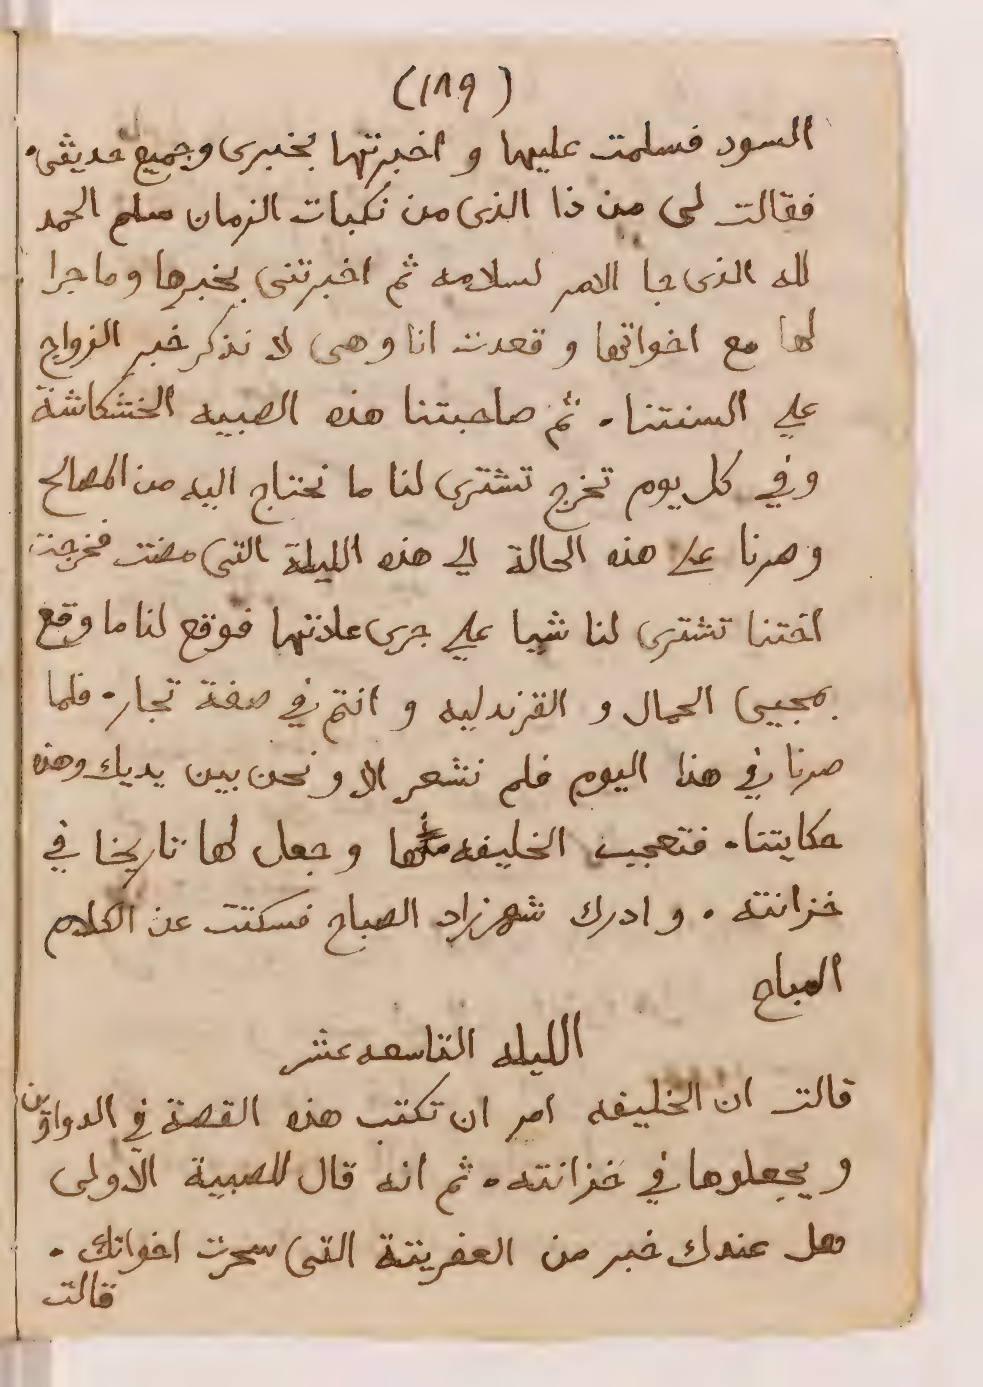 (١٨٩)
السود فسلمت عليها و اخبرتها بخبرى وجميع حديثى.
فقالت لى من ذا الذى من نكبات الزمان سلم الحمد
لله الذى جا الامر لسلامه ثم اخبرتنى بخبرها وما جرا
لها مع اخواتها و قعدت انا وهى لا نذكر خبر الزواج
على السنتنا. ثم صاحبتنا هذه الصبيه الخشكاشة
وفي كل يوم تخرج تشترى لنا ما نحتاج اليه من المصالح
وصرنا على هذه الحالة الي هذه الليلة التى مضت فخرجت
اختنا تشترى لنا شيا على جرى عادتها فوقع لنا ما وقع
بمجيى الحمال و القرندليه و انتم في صفة تجار. فلما
صرنا في هذا اليوم فلم نشعر الا و نحن بين يديك وهذه
حكايتنا. فتعجب الخليفه منها و جعل لها تاريخا في
خزانته. و ادرك شهرزاد الصباح فسكتت عن الكلام
المباح
الليله التاسعه عشر
قالت ان الخليفه امر ان تكتب هذه القصة في الدواوين
و يجعلوها في خزانته. ثم انه قال للصبية الاولى
هل عندك خبر من العفريتة التى سحرت اخواتك.
قالت